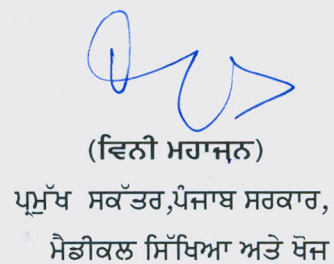 (ਵਿਨੀ ਮਹਾਜਨ)
ਪ੍ਰਮੁੱਖ ਸਕੱਤਰ,ਪੰਜਾਬ ਸਰਕਾਰ,
ਮੈਡੀਕਲ ਸਿੱਖਿਆ ਅਤੇ ਖੋਜ